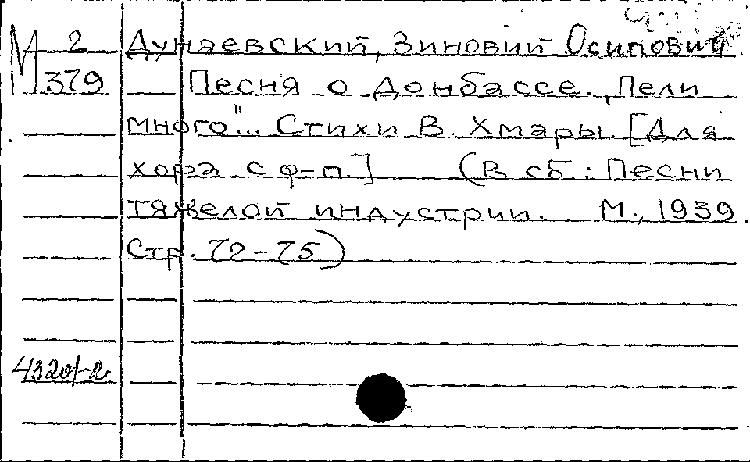 М 2 Дунаевский, Зиновий Осипович
379 Песня о Донбассе. „Пели
много"... Стихи В. Хмары. [Для
хора с ф-п.] (В сб.: Песни
тяжелой индустрии. М., 1939.
Стр. 72-75)